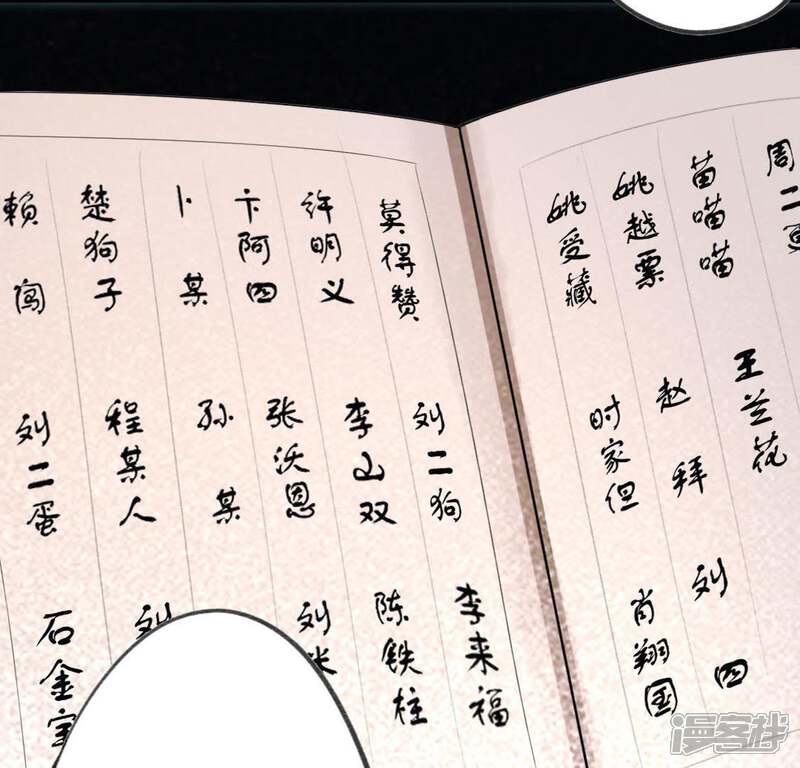 周二
苗喵喵
姚越票
姚受藏
王兰花
赵拜
时家但
刘四
肖翔国
莫得赞
许明义
卞阿四
卜某
楚狗子
賴闯
刘二狗
李山双
张沃恩
孙某
程某人
刘二蛋
李来福
陈铁柱
刘
刘
石金宝
漫客栈